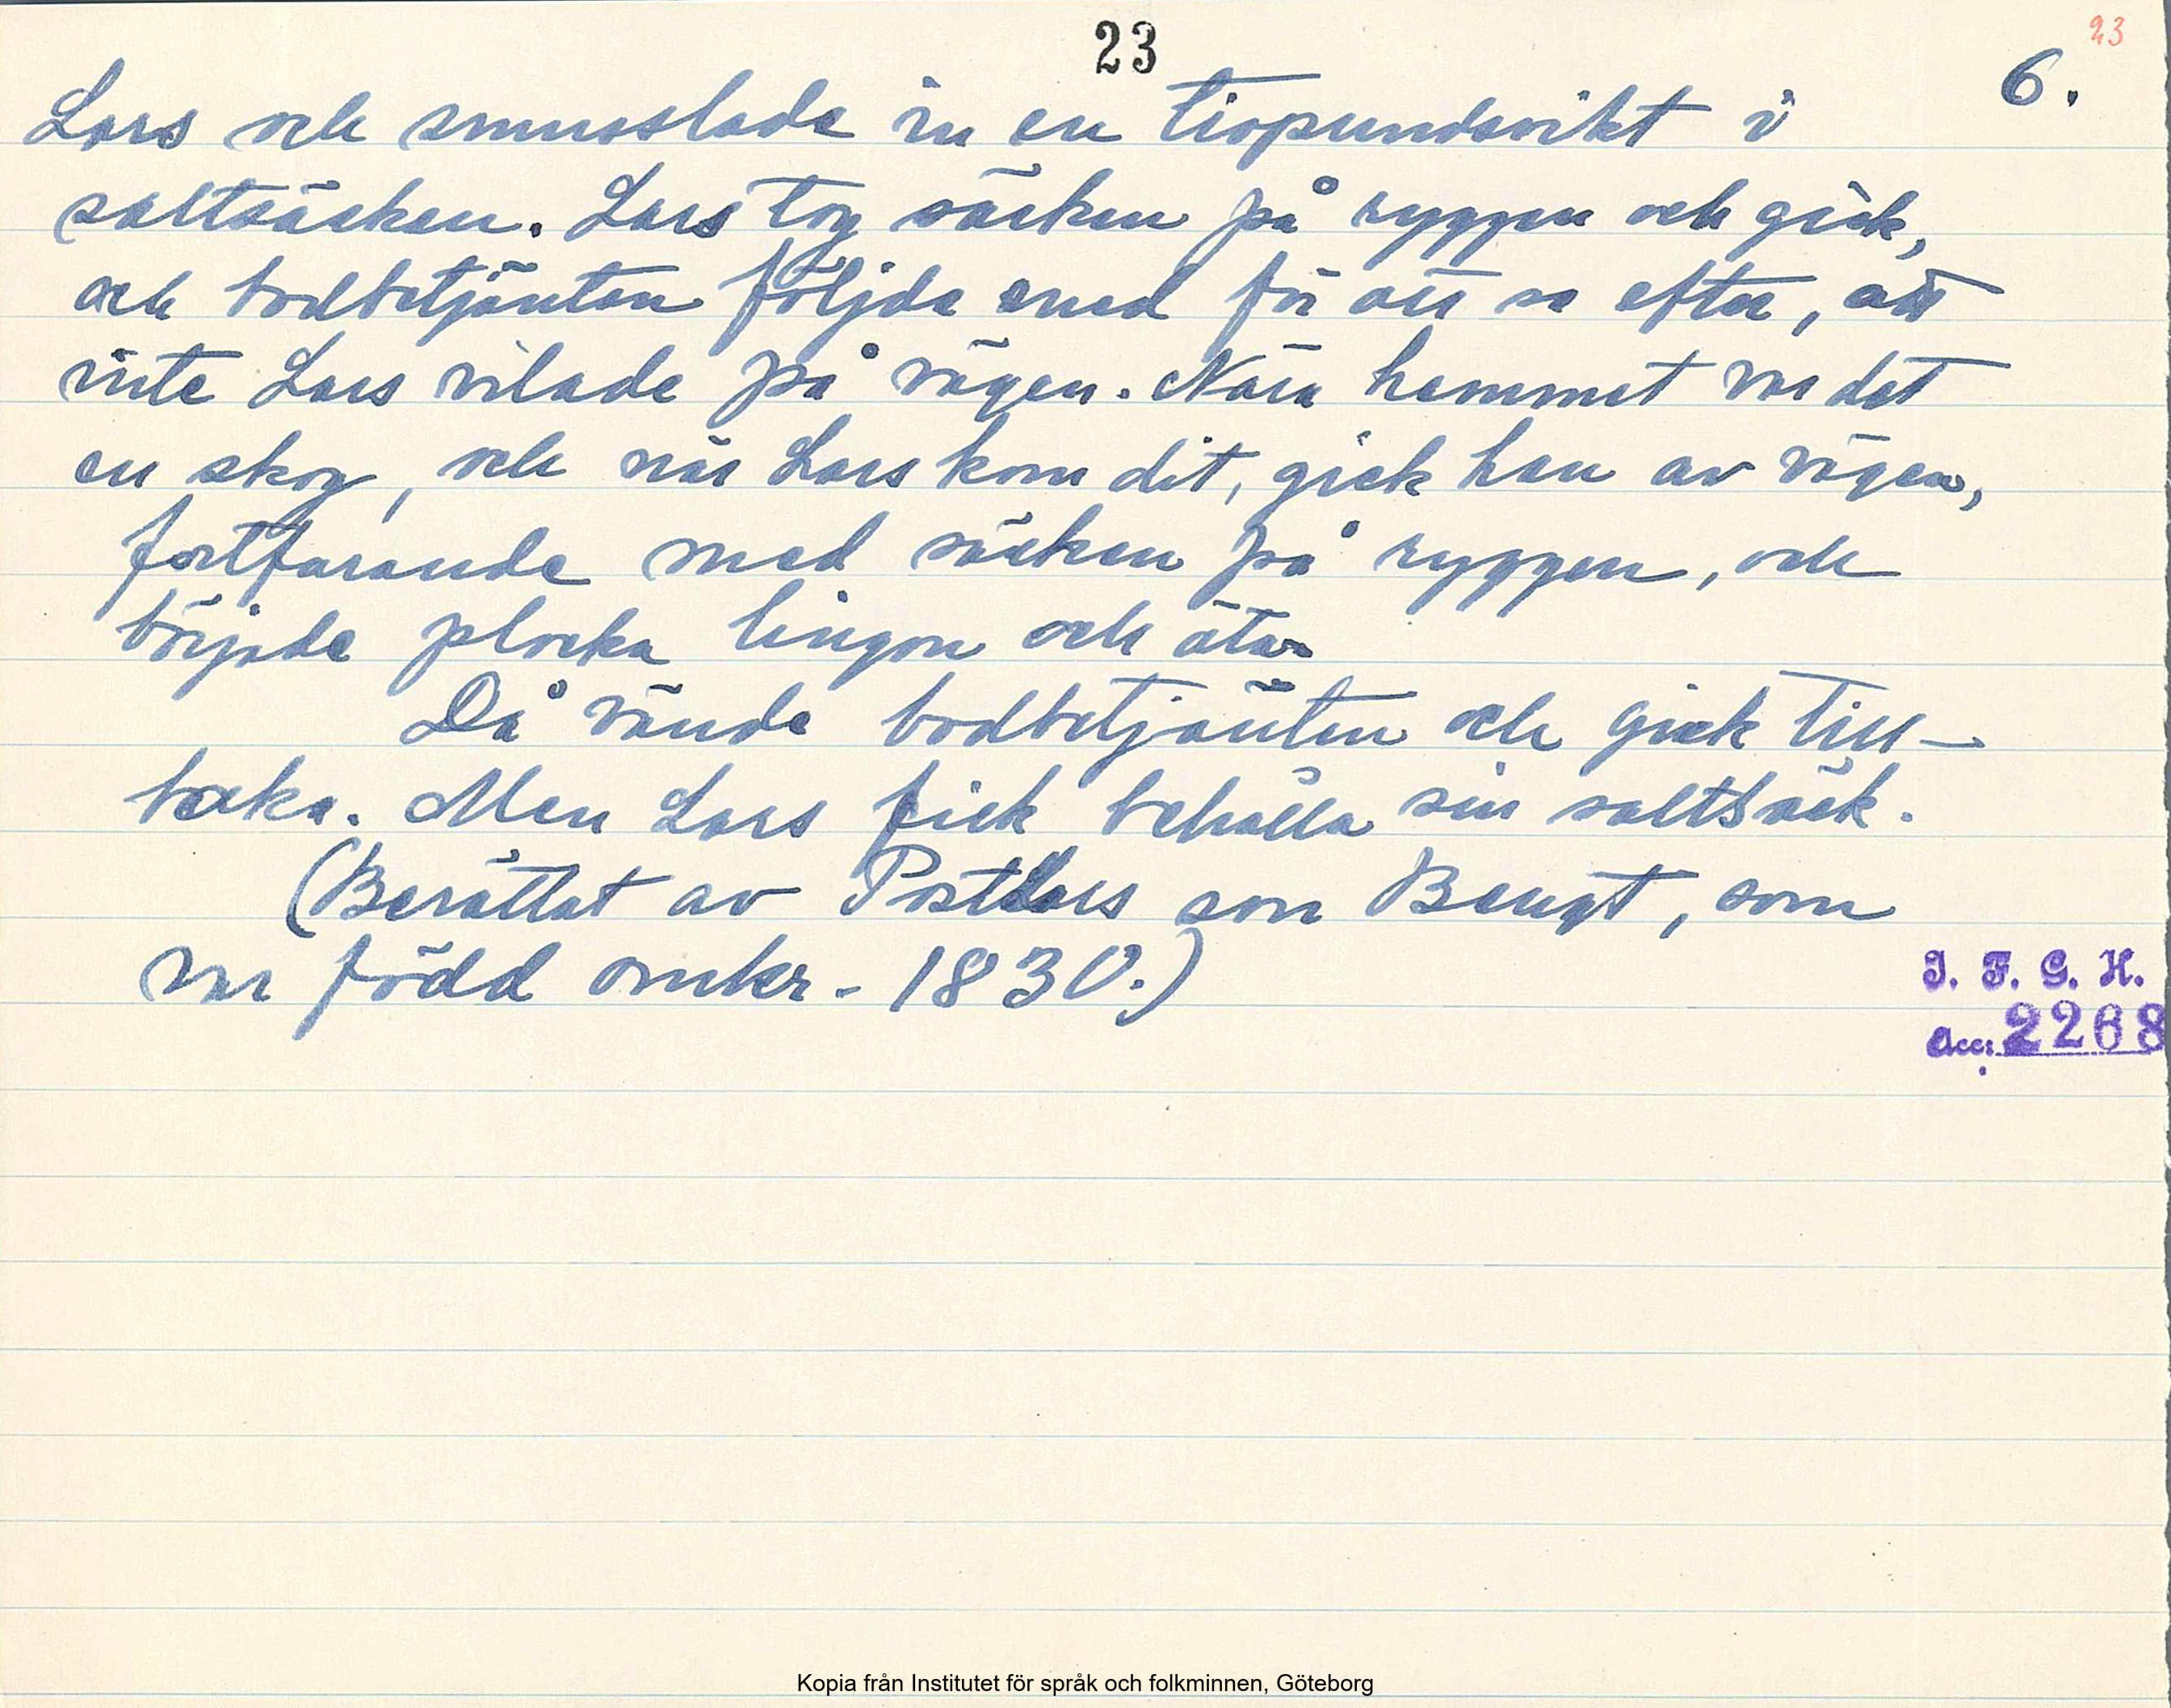 23
23
6.
Lars och smusslade in en tiopundsvikt i
saltsäcken. Lars tog säcken på ryggen och gick,
och bodbetjänten följde med för att se efter, att
inte Lars vilade på vägen. Nära hemmet var det
en skog, och när Lars kom dit, gick han av vägen,
fortfarande med säcken på ryggen, och
började plocka lingon och äta.
Då vände bodbetjänten och gick till-
baka. Men Lars fick behålla sin saltsäck.
(Berättat av PostLars son Bengt, som
var född omkr. 1830.)
I. F. G. H.
Acc: 2268
Kopia från Institutet för språk och folkminnen, Göteborg